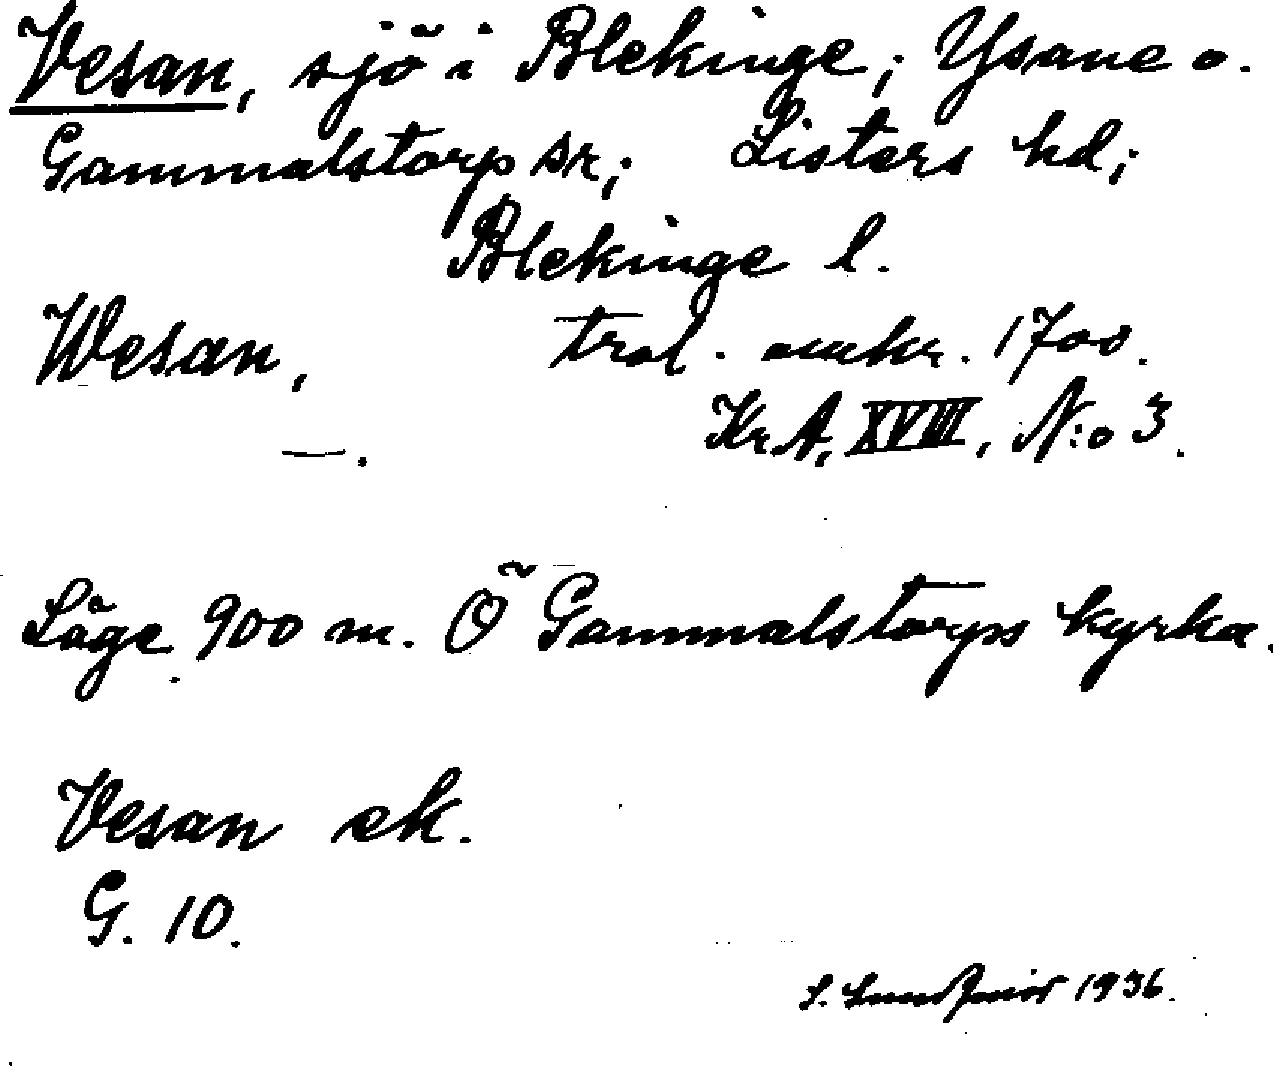 Vesan, sjö i Blekinge; Ysane o.
Gammalstorp sr; Listers hd;
Blekinge l.
Wesan, trol. omkr. 1700.
Kr.A. XVIII, N:o 3.
—.
Läge 900 m. Ö Gammalstorps kyrka.
Vesan ek.
G. 10.
1936.